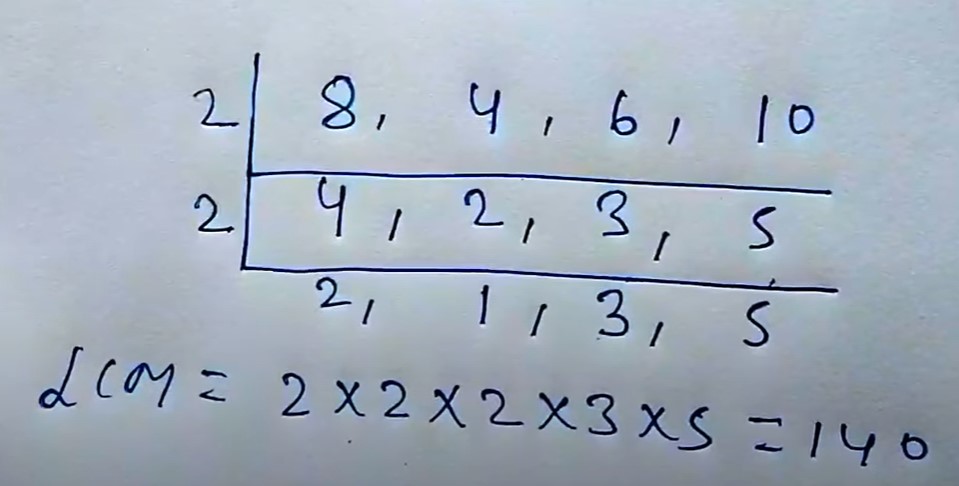 2 8, 4, 6, 10
2 4, 2, 3, 5
2, 1, 3, 5
LCM = 2×2×2×3×5 = 140